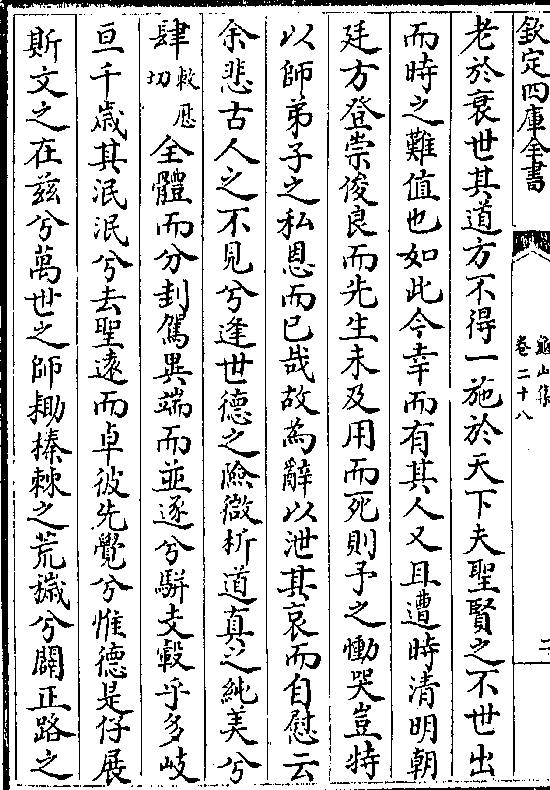 欽定四庫全書
龜山集
卷二十八
二
老於衰世其道方不得一施於天下夫聖賢之不世出
而時之難值也如此今幸而有其人又且遭時清明朝
廷方登崇俊良而先生未及用而死則予之慟哭豈特
以師弟子之私恩而已哉故為辭以泄其哀而自慰云
余悲古人之不見兮逢世德之險微析道真之純美兮
肆
切
全體而分刲駕異端而並逐兮駢支轂乎多岐
亘千歲其泯泯兮去聖遠而卓彼先覺兮惟德是仔展
斯文之在茲兮萬世之師耡榛棘之荒穢兮闢正路之